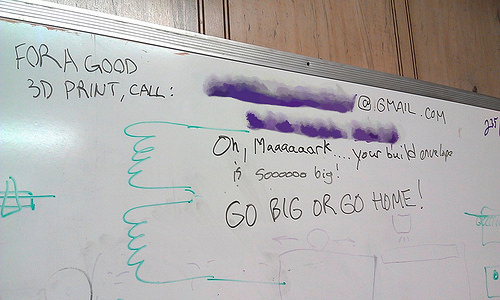 FOR A GOOD
3D PRINT, CALL:
@GMAIL.COM
Oh, Maaaaaark....your build envelope
is soooooo big!
GO BIG OR GO HOME!